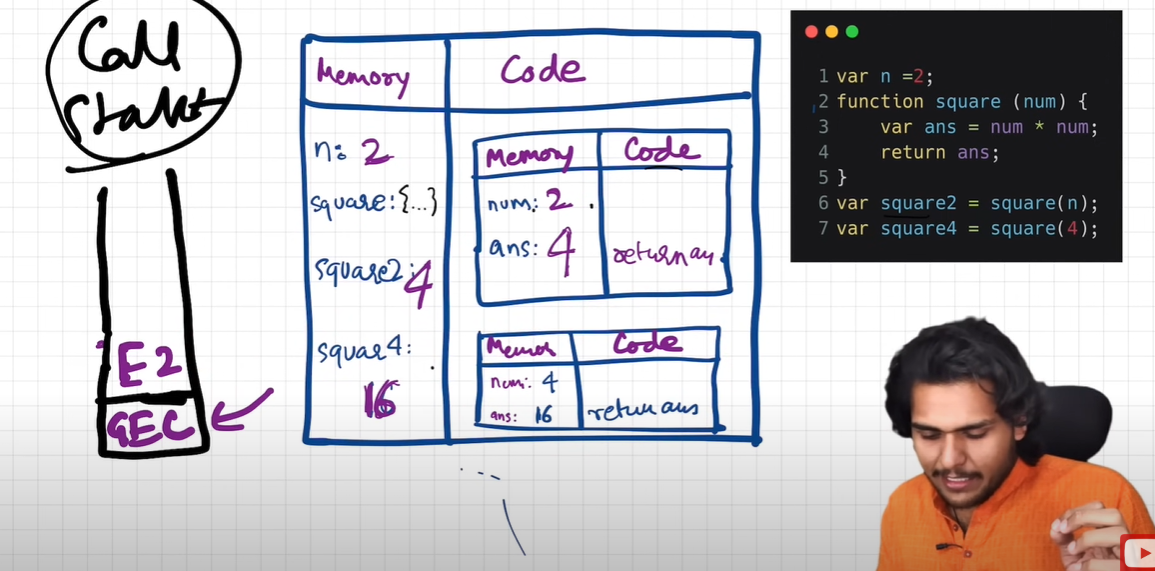 Call
Stakt
E2
GEC
Memory
Code
n: 2
square: {...}
square2: 4
squar4:
16
Memory
Code
num: 2
ans: 4
return an
Memor
Code
num: 4
ans: 16
return ans
1 var n =2;
2 function square (num) {
3 var ans = num * num;
4 return ans;
5 }
6 var square2 = square(n);
7 var square4 = square(4);